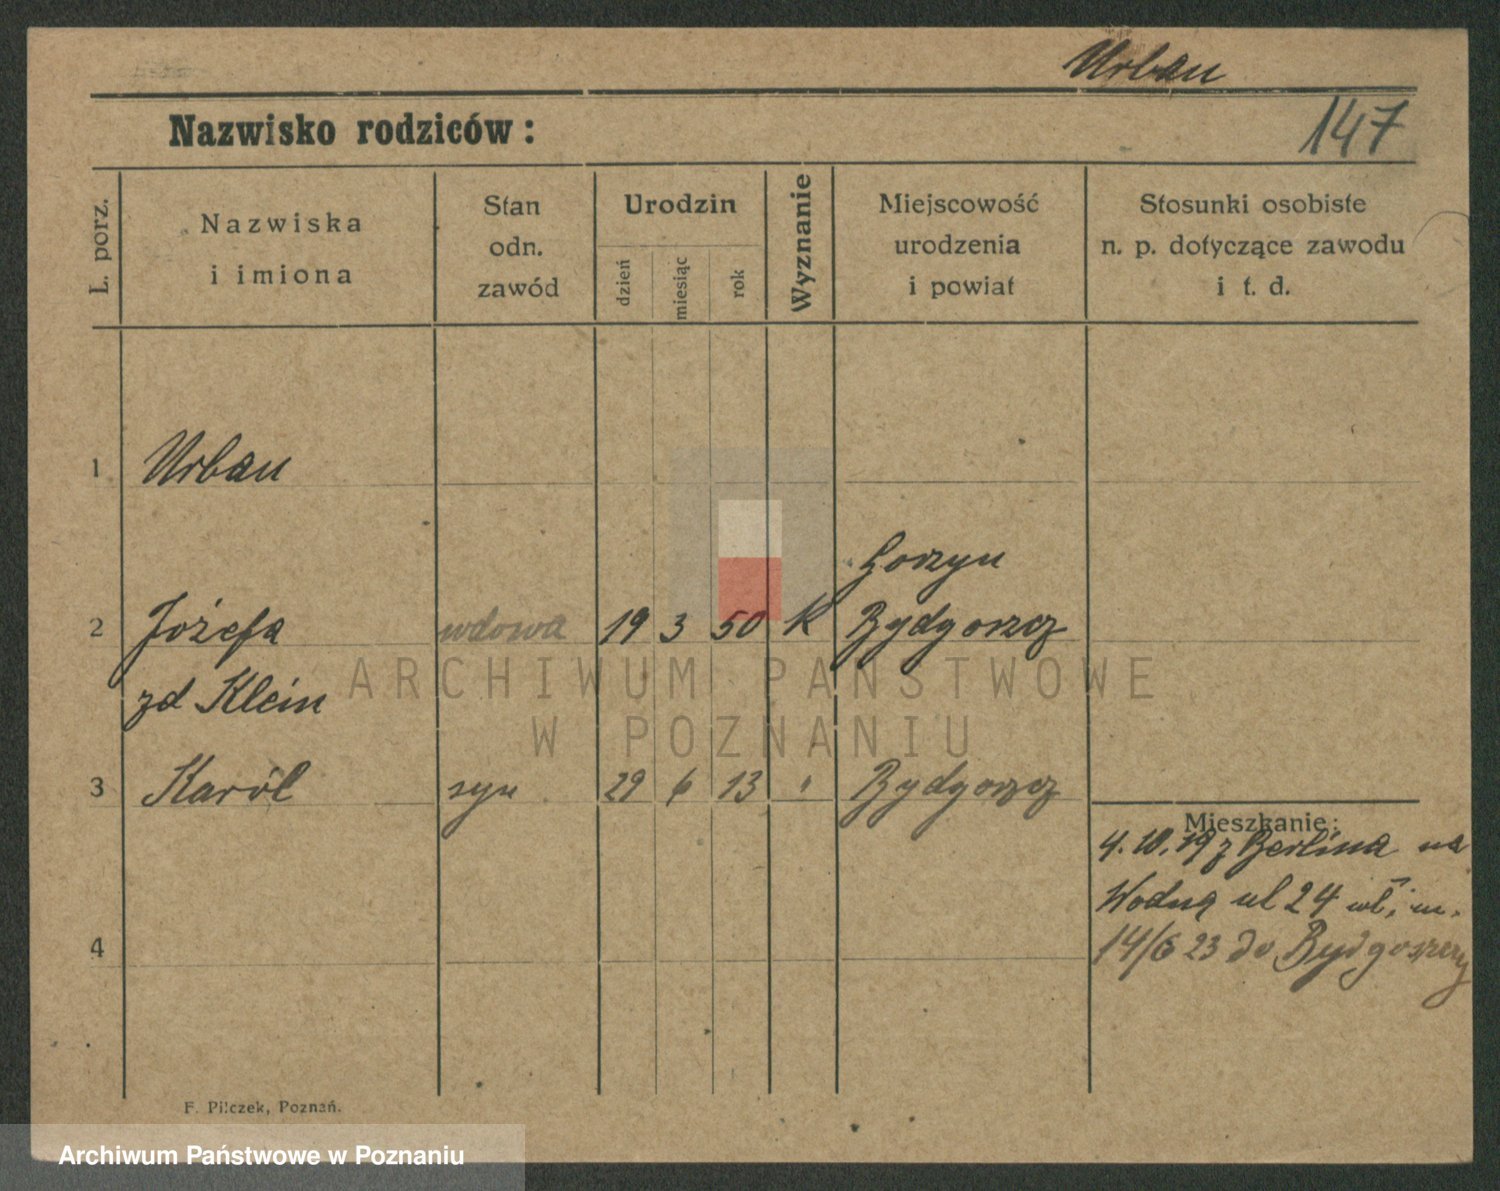 Urban
147
Nazwisko rodziców:
L. porz.
Nazwiska
i imiona
Stan
odn.
zawód
Urodzin
dzień
miesiąc
rok
Wyznanie
Miejscowość
urodzenia
i powiat
Stosunki osobiste
n. p. dotyczące zawodu
i t. d.
1 Urban
Gorzyn
2 Józefa wdowa 19 3 50 K Bydgoszcz
zd Klein
3 Karól syn 29 6 13 " Bydgoszcz
Mieszkanie:
4. 10. 19 z Berlina na
Wodną ul 24 m.
14/6 23 do Bydgoszczy
4
F. Pilczek, Poznań.
ARCHIWUM PAŃSTWOWE
W POZNANIU
Archiwum Państwowe w Poznaniu